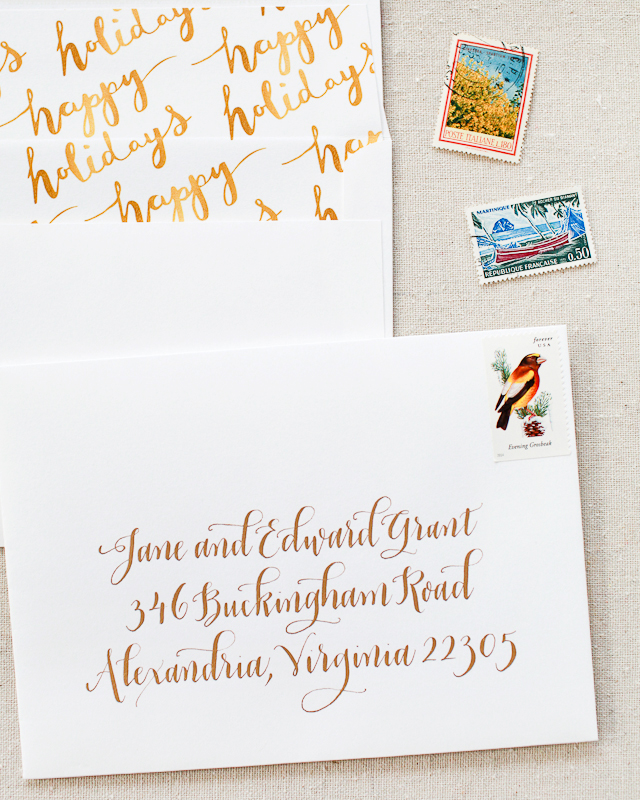 holidays
happy
holidays
happy
holidays
happy
POSTE ITALIANE L.180
MARTINIQUE
RÉPUBLIQUE FRANÇAISE
0.50
forever
USA
Evening Grosbeak
Jane and Edward Grant
346 Buckingham Road
Alexandria, Virginia 22305